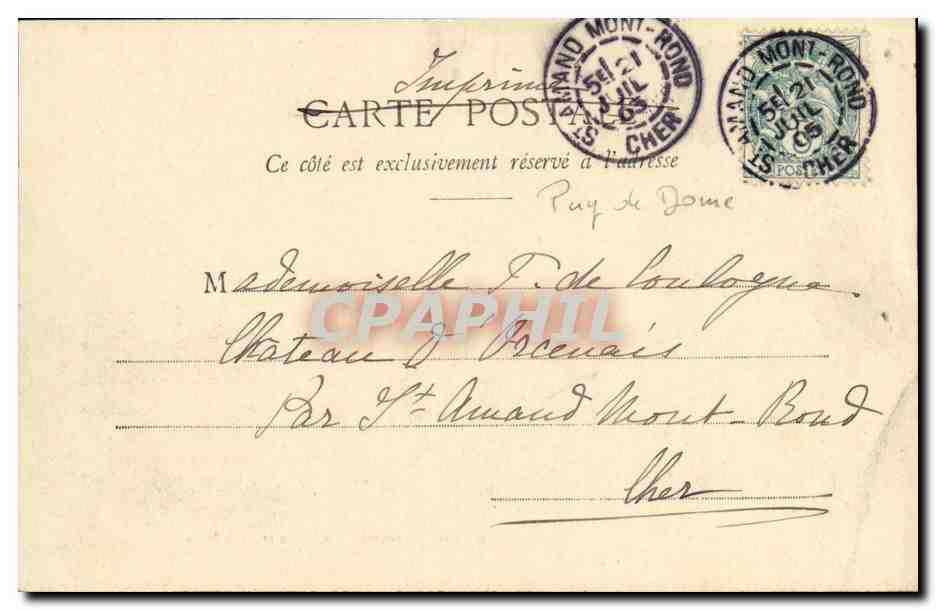 Imprimé
CARTE POSTALE
Ce côté est exclusivement réservé à l'adresse
Puy de Dome
Mademoiselle F. de Coulogne
Château d'Orcenais
Par St. Amand Mont-Rond
Cher
ST AMAND MONT-ROND
5E 21
JUIL
05
CHER
ST AMAND MONT-ROND
5E 21
JUIL
05
CHER
POSTES
CPAPHIL